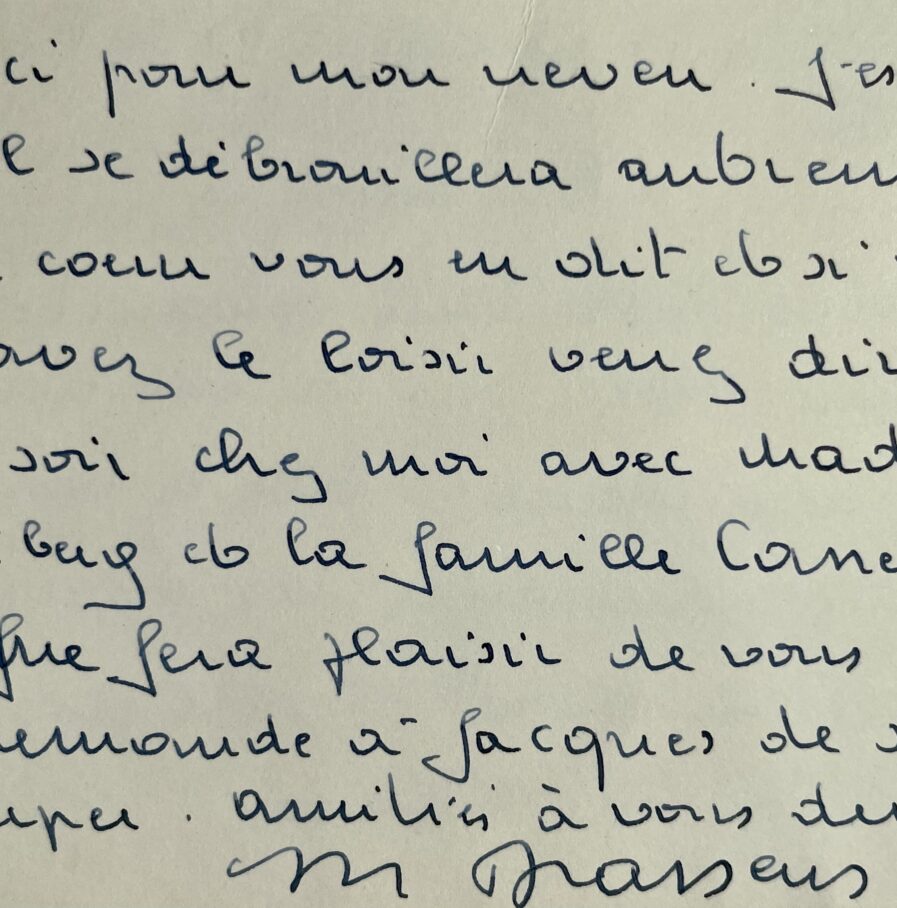 ci pour mon neveu. J'es
l se débrouillera autrem
coeur vous en dit et si
avez le loisir venez dîn
soir chez moi avec mad
berg et la famille Canet
que fera plaisir de vous
demande à Jacques de
uper. amitiés à vous deu
M Brassens